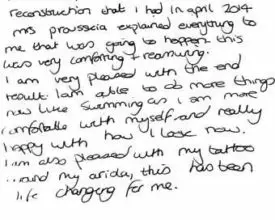 reconstruction that I had in april 2014
mrs prousskia explained everything to
me that was going to happen this
was very comforting + reassuring.
I am very pleased with the end
result. I am able to do more things
now like swimming as I am more
comfortable with myself and really
happy with how I look now.
I am also pleased with my tattoo
round my areola, this has been
life changing for me.